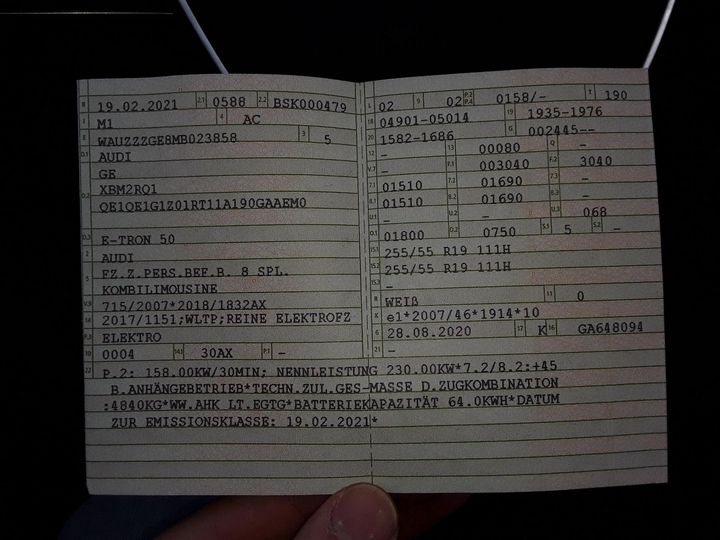 B 19.02.2021 2.1 0588 2.2 BSK000479
J M1 4 AC
E WAUZZZGE8MB023858 3 5
D.1 AUDI
GE
D.2 XBM2RQ1
QE1QE1G1Z01RT11A190GAAEM0
D.3 E-TRON 50
2 AUDI
5 FZ.Z.PERS.BEF.B. 8 SPL.
KOMBILIMOUSINE
V.9 715/2007*2018/1832AX
14 2017/1151;WLTP;REINE ELEKTROFZ
P.3 ELEKTRO
10 0004 14.1 30AX P.1 -
L 02 9 02 P.2 P.4 0158/- T 190
18 04901-05014 19 1935-1976
20 1582-1686 G 002445--
12 - 13 00080 Q -
V.7 - F.1 003040 F.2 3040
7.1 01510 7.2 01690 7.3 -
8.1 01510 8.2 01690 8.3 -
U.1 - U.2 - U.3 068
O.1 01800 O.2 0750 S.1 5 S.2 -
15.1 255/55 R19 111H
15.2 255/55 R19 111H
15.3 -
R WEIß 11 0
K e1*2007/46*1914*10
6 28.08.2020 17 K 16 GA648094
21 -
22 P.2: 158.00KW/30MIN; NENNLEISTUNG 230.00KW*7.2/8.2:+45
B.ANHÄNGEBETRIEB*TECHN.ZUL.GES-MASSE D.ZUGKOMBINATION
:4840KG*WW.AHK LT.EGTG*BATTERIEKAPAZITÄT 64.0KWH*DATUM
ZUR EMISSIONSKLASSE: 19.02.2021*